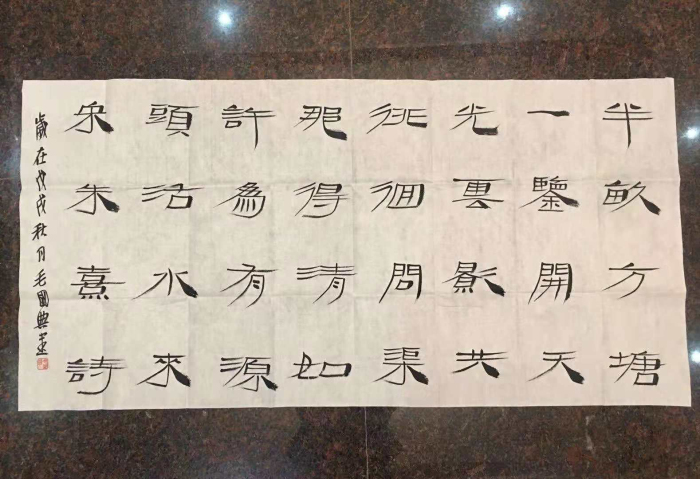 半畝方塘
一鑒開天
光雲影共
徘徊問渠
那得清如
許為有源
頭活水來
宋朱熹詩
歲在戊戌秋月毛國典書